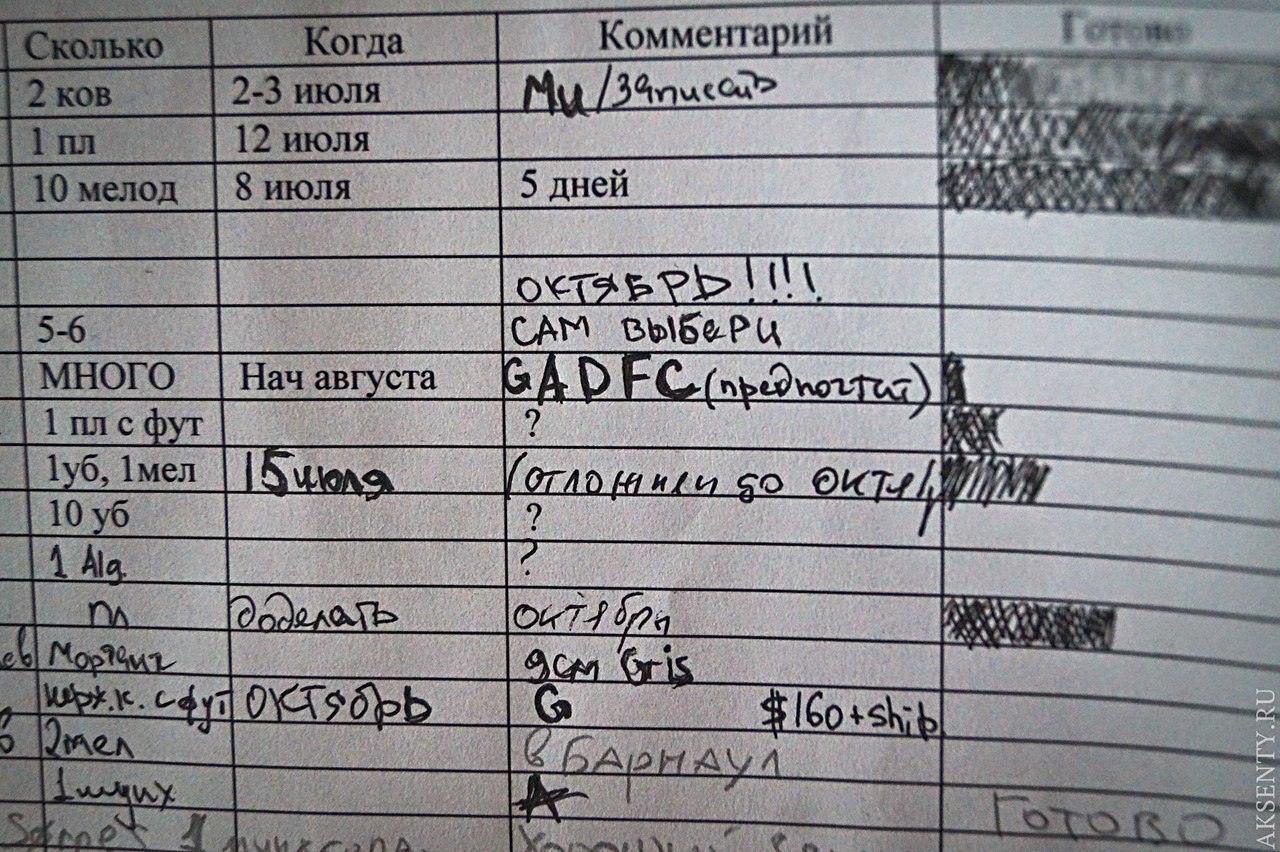 Сколько Когда Комментарий Готово
2 ков 2-3 июля Ми/записать
1 пл 12 июля
10 мелод 8 июля 5 дней
ОКТЯБРЬ!!!!
5-6 САМ ВЫБЕРИ
МНОГО Нач августа GADFC (предпочтит)
1 пл с фут ?
1уб, 1мел 15 июля (отложили до ОКТЯ
10 уб ?
1 Alg. ?
пл доделать октября
gcm Gris
с фут ОКТЯбрЬ G $160+ship
2мел в БАРНАУЛ
А ГОТОВО
1
Хороший
AKSENTY.RU